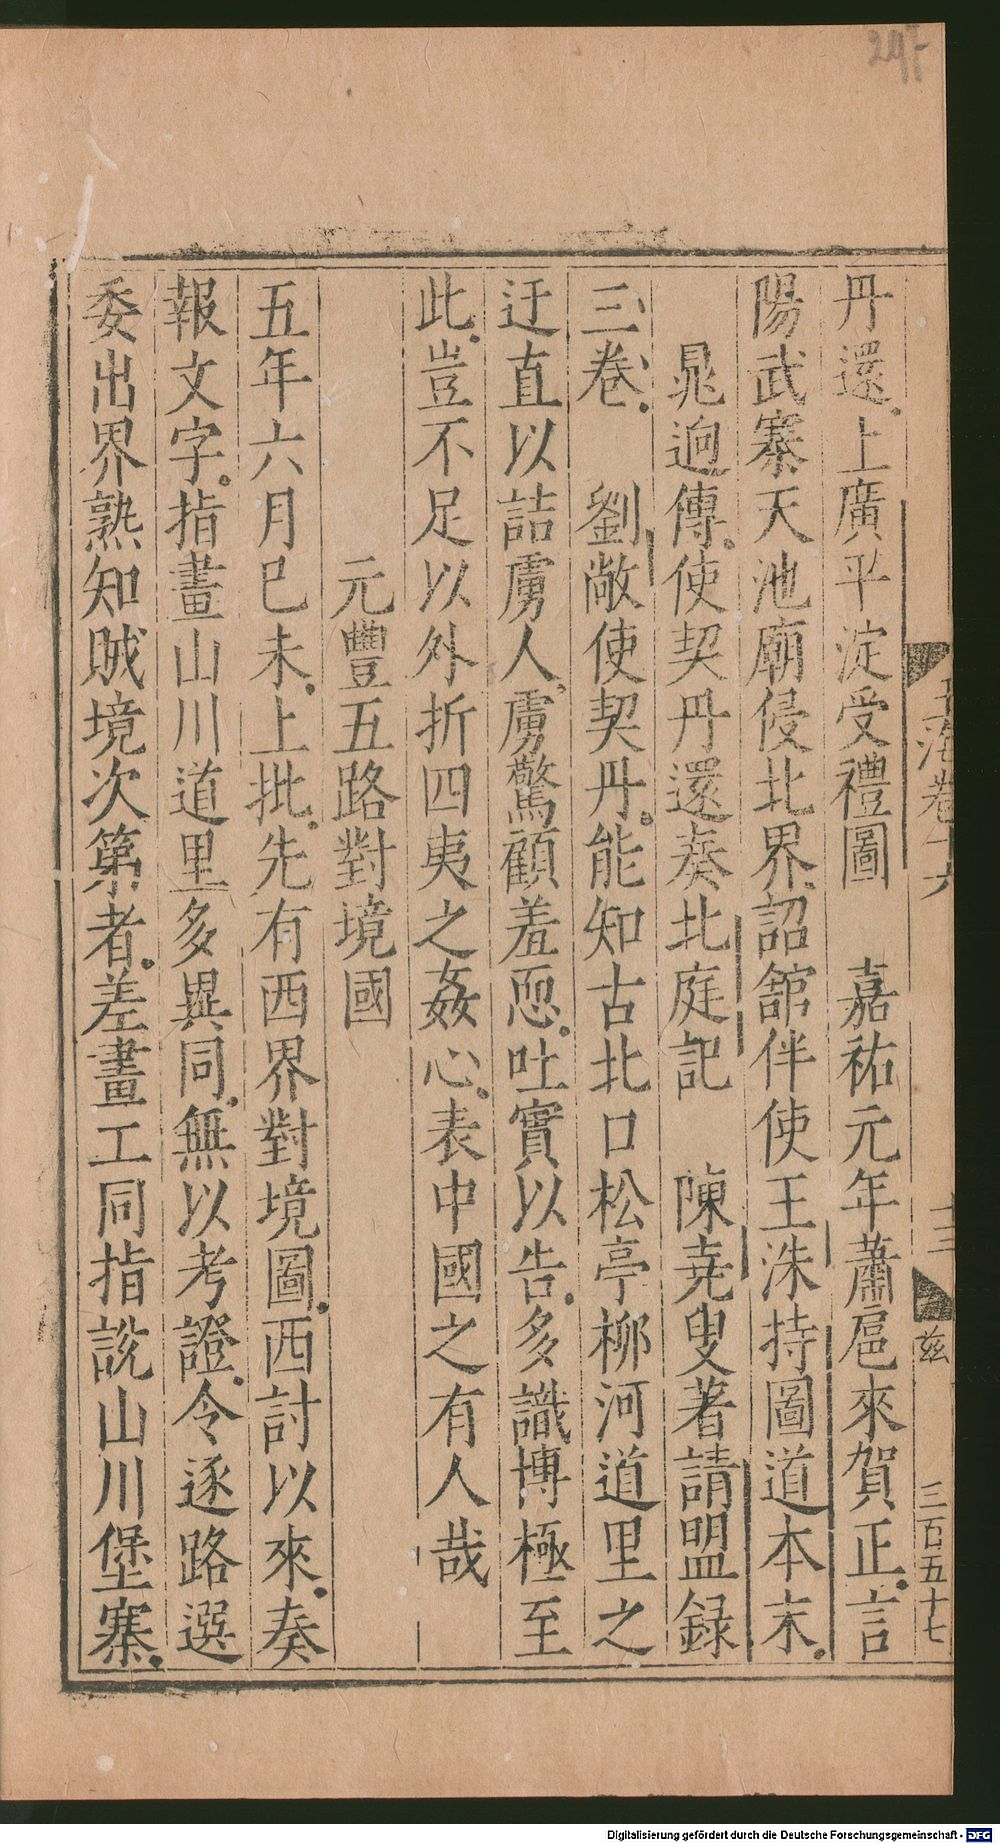 丹還上廣平淀受禮圖　嘉祐元年蕭扈來賀正言
陽武寨天池廟侵北界詔舘伴使王洙持圖道本末
晁迥傳使契丹還奏北庭記　陳尭叟著請盟録
三卷　劉敞使契丹能知古北口松亭柳河道里之
迂直以詰虜人虜驚顧羞恧吐實以告多識博極至
此豈不足以外折四夷之姦心表中國之有人哉
元豐五路對境國
五年六月己未上批先有西界對境圖西討以來奏
報文字指畫山川道里多異同無以考證令逐路選
委出界熟知賊境次第者差畫工同指說山川堡寨
玉海卷十六
十三
兹
三百五十七
Digitalisierung gefördert durch die Deutsche Forschungsgemeinschaft - DFG